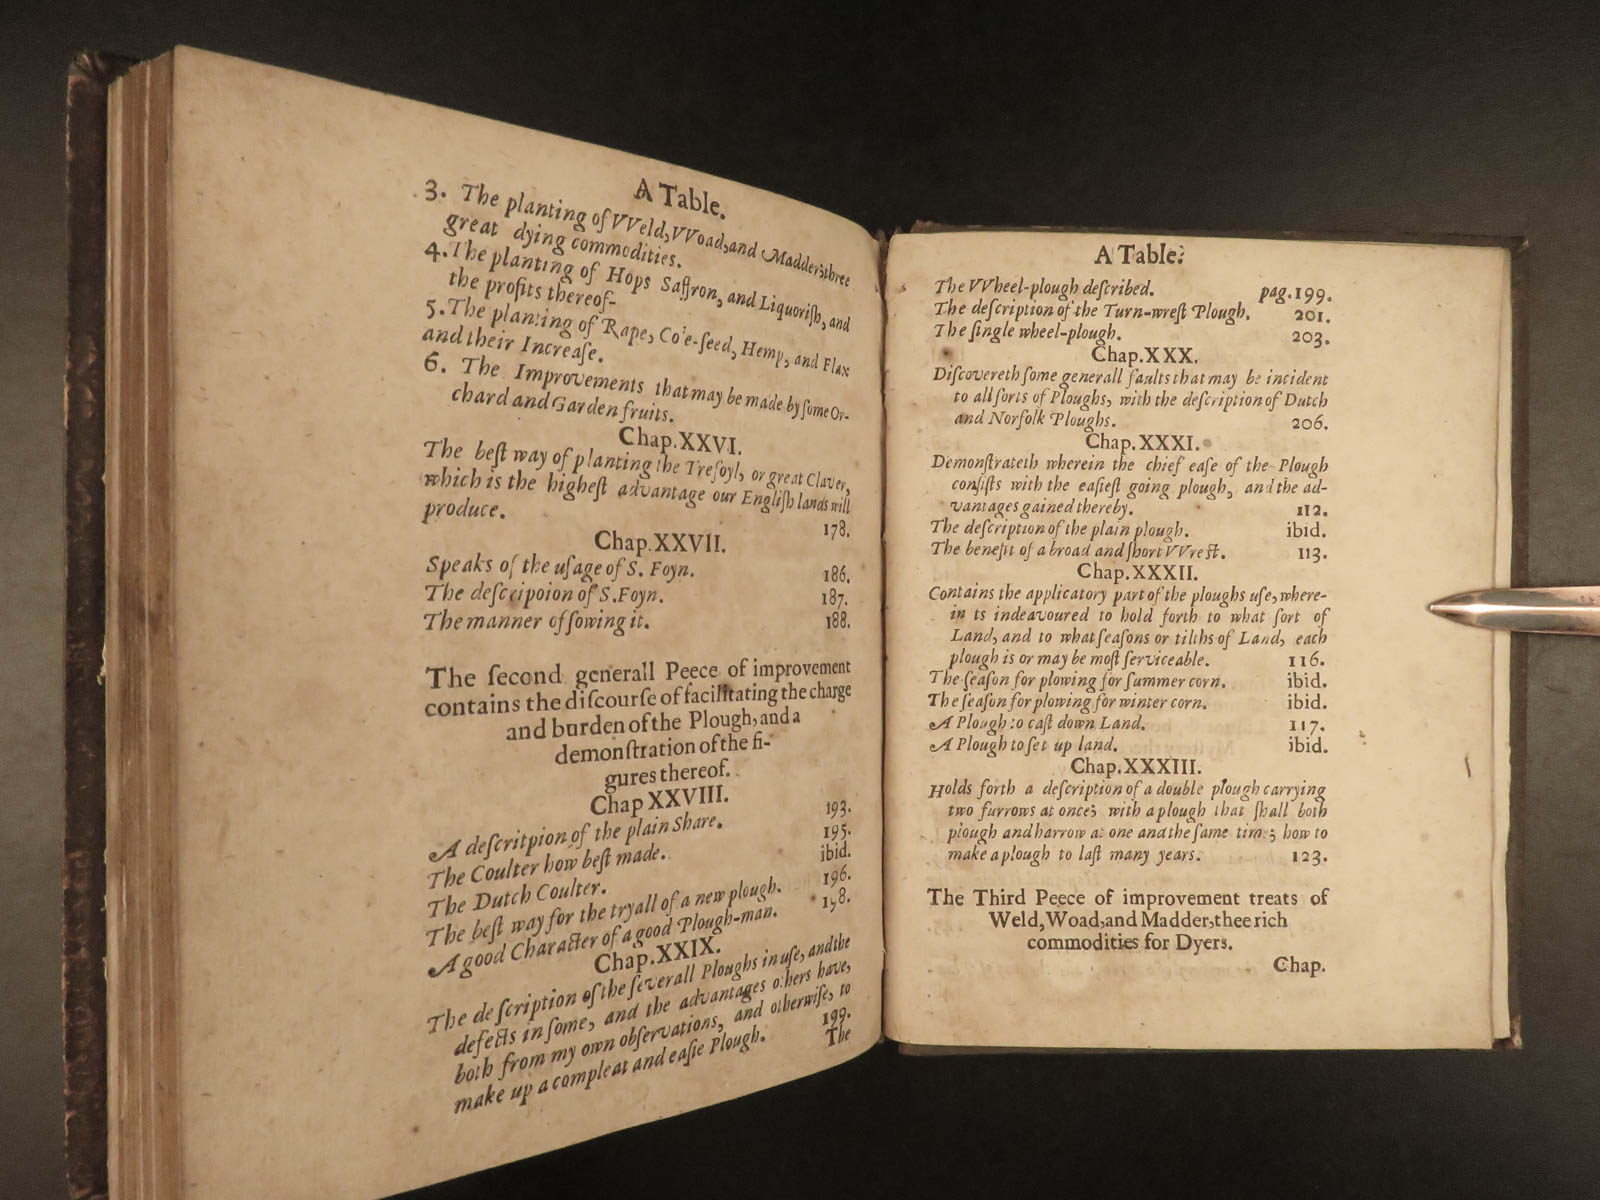 A Table.
3. The planting of VVeld, VVoad, and Madder; three
great dying commodities.
4. The planting of Hops Saffron, and Liquoriſh, and
the profits thereof.
5. The planting of Rape, Co'e-ſeed, Hemp, and Flax
and their Increaſe.
6. The Improvements that may be made by ſome Or-
chard and Garden fruits.
Chap. XXVI.
The beſt way of planting the Trefoyl, or great Claver,
which is the higheſt advantage our Engliſh lands will
produce. 178.
Chap. XXVII.
Speaks of the uſage of S. Foyn. 186.
The deſcripoion of S. Foyn. 187.
The manner of ſowing it. 188.
The ſecond generall Peece of improvement
contains the diſcourſe of facilitating the charge
and burden of the Plough, and a
demonſtration of the fi-
gures thereof.
Chap XXVIII.
A deſcritpion of the plain Share. 193.
The Coulter how beſt made. 195.
The Dutch Coulter. ibid.
The beſt way for the tryall of a new plough. 196.
A good Character of a good Plough-man. 198.
Chap. XXIX.
The deſcription of the ſeverall Ploughs in uſe, and the
defects in ſome, and the advantages others have,
both from my own obſervations, and otherwiſe, to
make up a compleat and eaſie Plough. 199.
The
A Table.
The VVheel-plough deſcribed. pag. 199.
The deſcription of the Turn-wreſt Plough. 201.
The ſingle wheel-plough. 203.
Chap. XXX.
Diſcovereth ſome generall faults that may be incident
to all ſorts of Ploughs, with the deſcription of Dutch
and Norfolk Ploughs. 206.
Chap. XXXI.
Demonſtrateth wherein the chief eaſe of the Plough
conſiſts with the eaſieſt going plough, and the ad-
vantages gained thereby. 112.
The deſcription of the plain plough. ibid.
The benefit of a broad and ſhort VVreſt. 113.
Chap. XXXII.
Contains the applicatory part of the ploughs uſe, where-
in ts indeavoured to hold forth to what ſort of
Land, and to what ſeaſons or tilths of Land, each
plough is or may be moſt ſerviceable. 116.
The ſeaſon for plowing for ſummer corn. ibid.
The ſeaſon for plowing for winter corn. ibid.
A Plough to caſt down Land. 117.
A Plough to ſet up land. ibid.
Chap. XXXIII.
Holds forth a deſcription of a double plough carrying
two furrows at once; with a plough that ſhall both
plough and harrow at one and the ſame time; how to
make a plough to laſt many years. 123.
The Third Peece of improvement treats of
Weld, Woad, and Madder, thee rich
commodities for Dyers.
Chap.